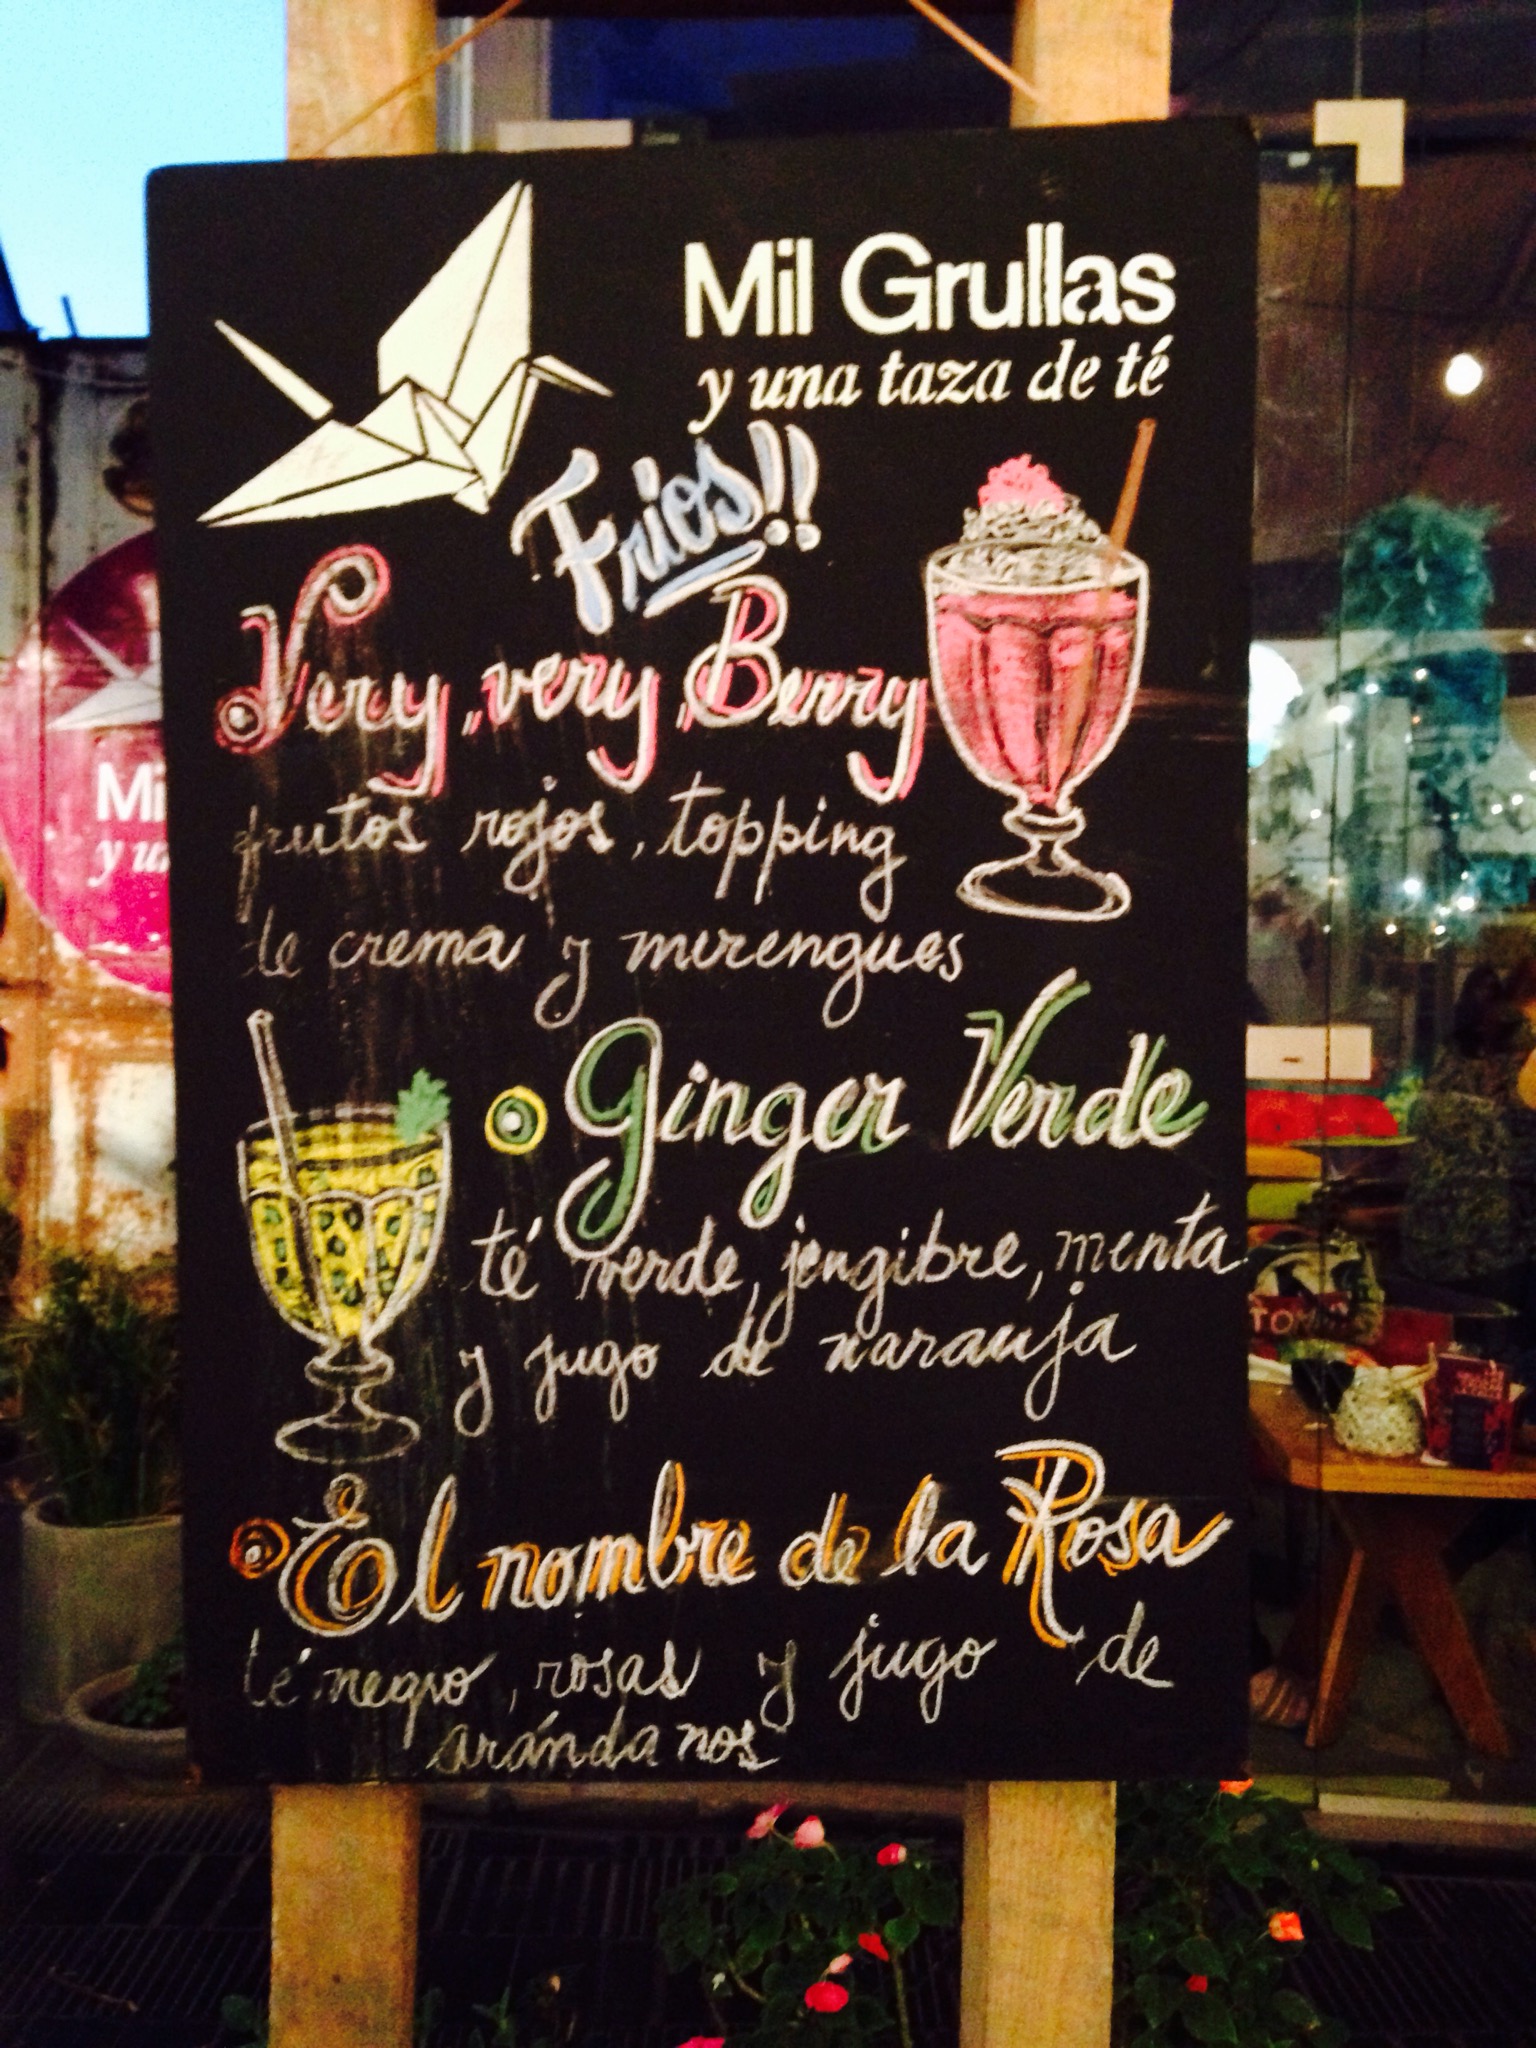 Mil Grullas
y una taza de té
Fríos!!
Very, very Berry
frutos rojos, topping
de crema y merengues
Ginger Verde
té verde, jengibre, menta
y jugo de naranja
El nombre de la Rosa
té negro, rosas y jugo de
arándanos
Mi
y u